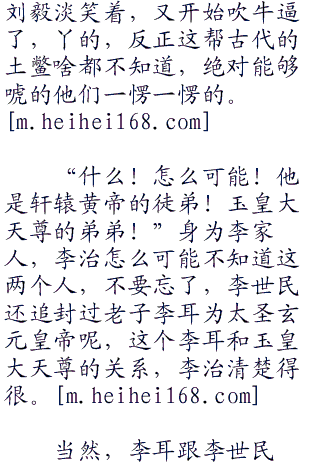 刘毅淡笑着，又开始吹牛逼
了，丫的，反正这帮古代的
土鳖啥都不知道，绝对能够
唬的他们一愣一愣的。
[m.heihei168.com]
“什么！怎么可能！他
是轩辕黄帝的徒弟！玉皇大
天尊的弟弟！”身为李家
人，李治怎么可能不知道这
两个人，不要忘了，李世民
还追封过老子李耳为太圣玄
元皇帝呢，这个李耳和玉皇
大天尊的关系，李治清楚得
很。[m.heihei168.com]
当然，李耳跟李世民